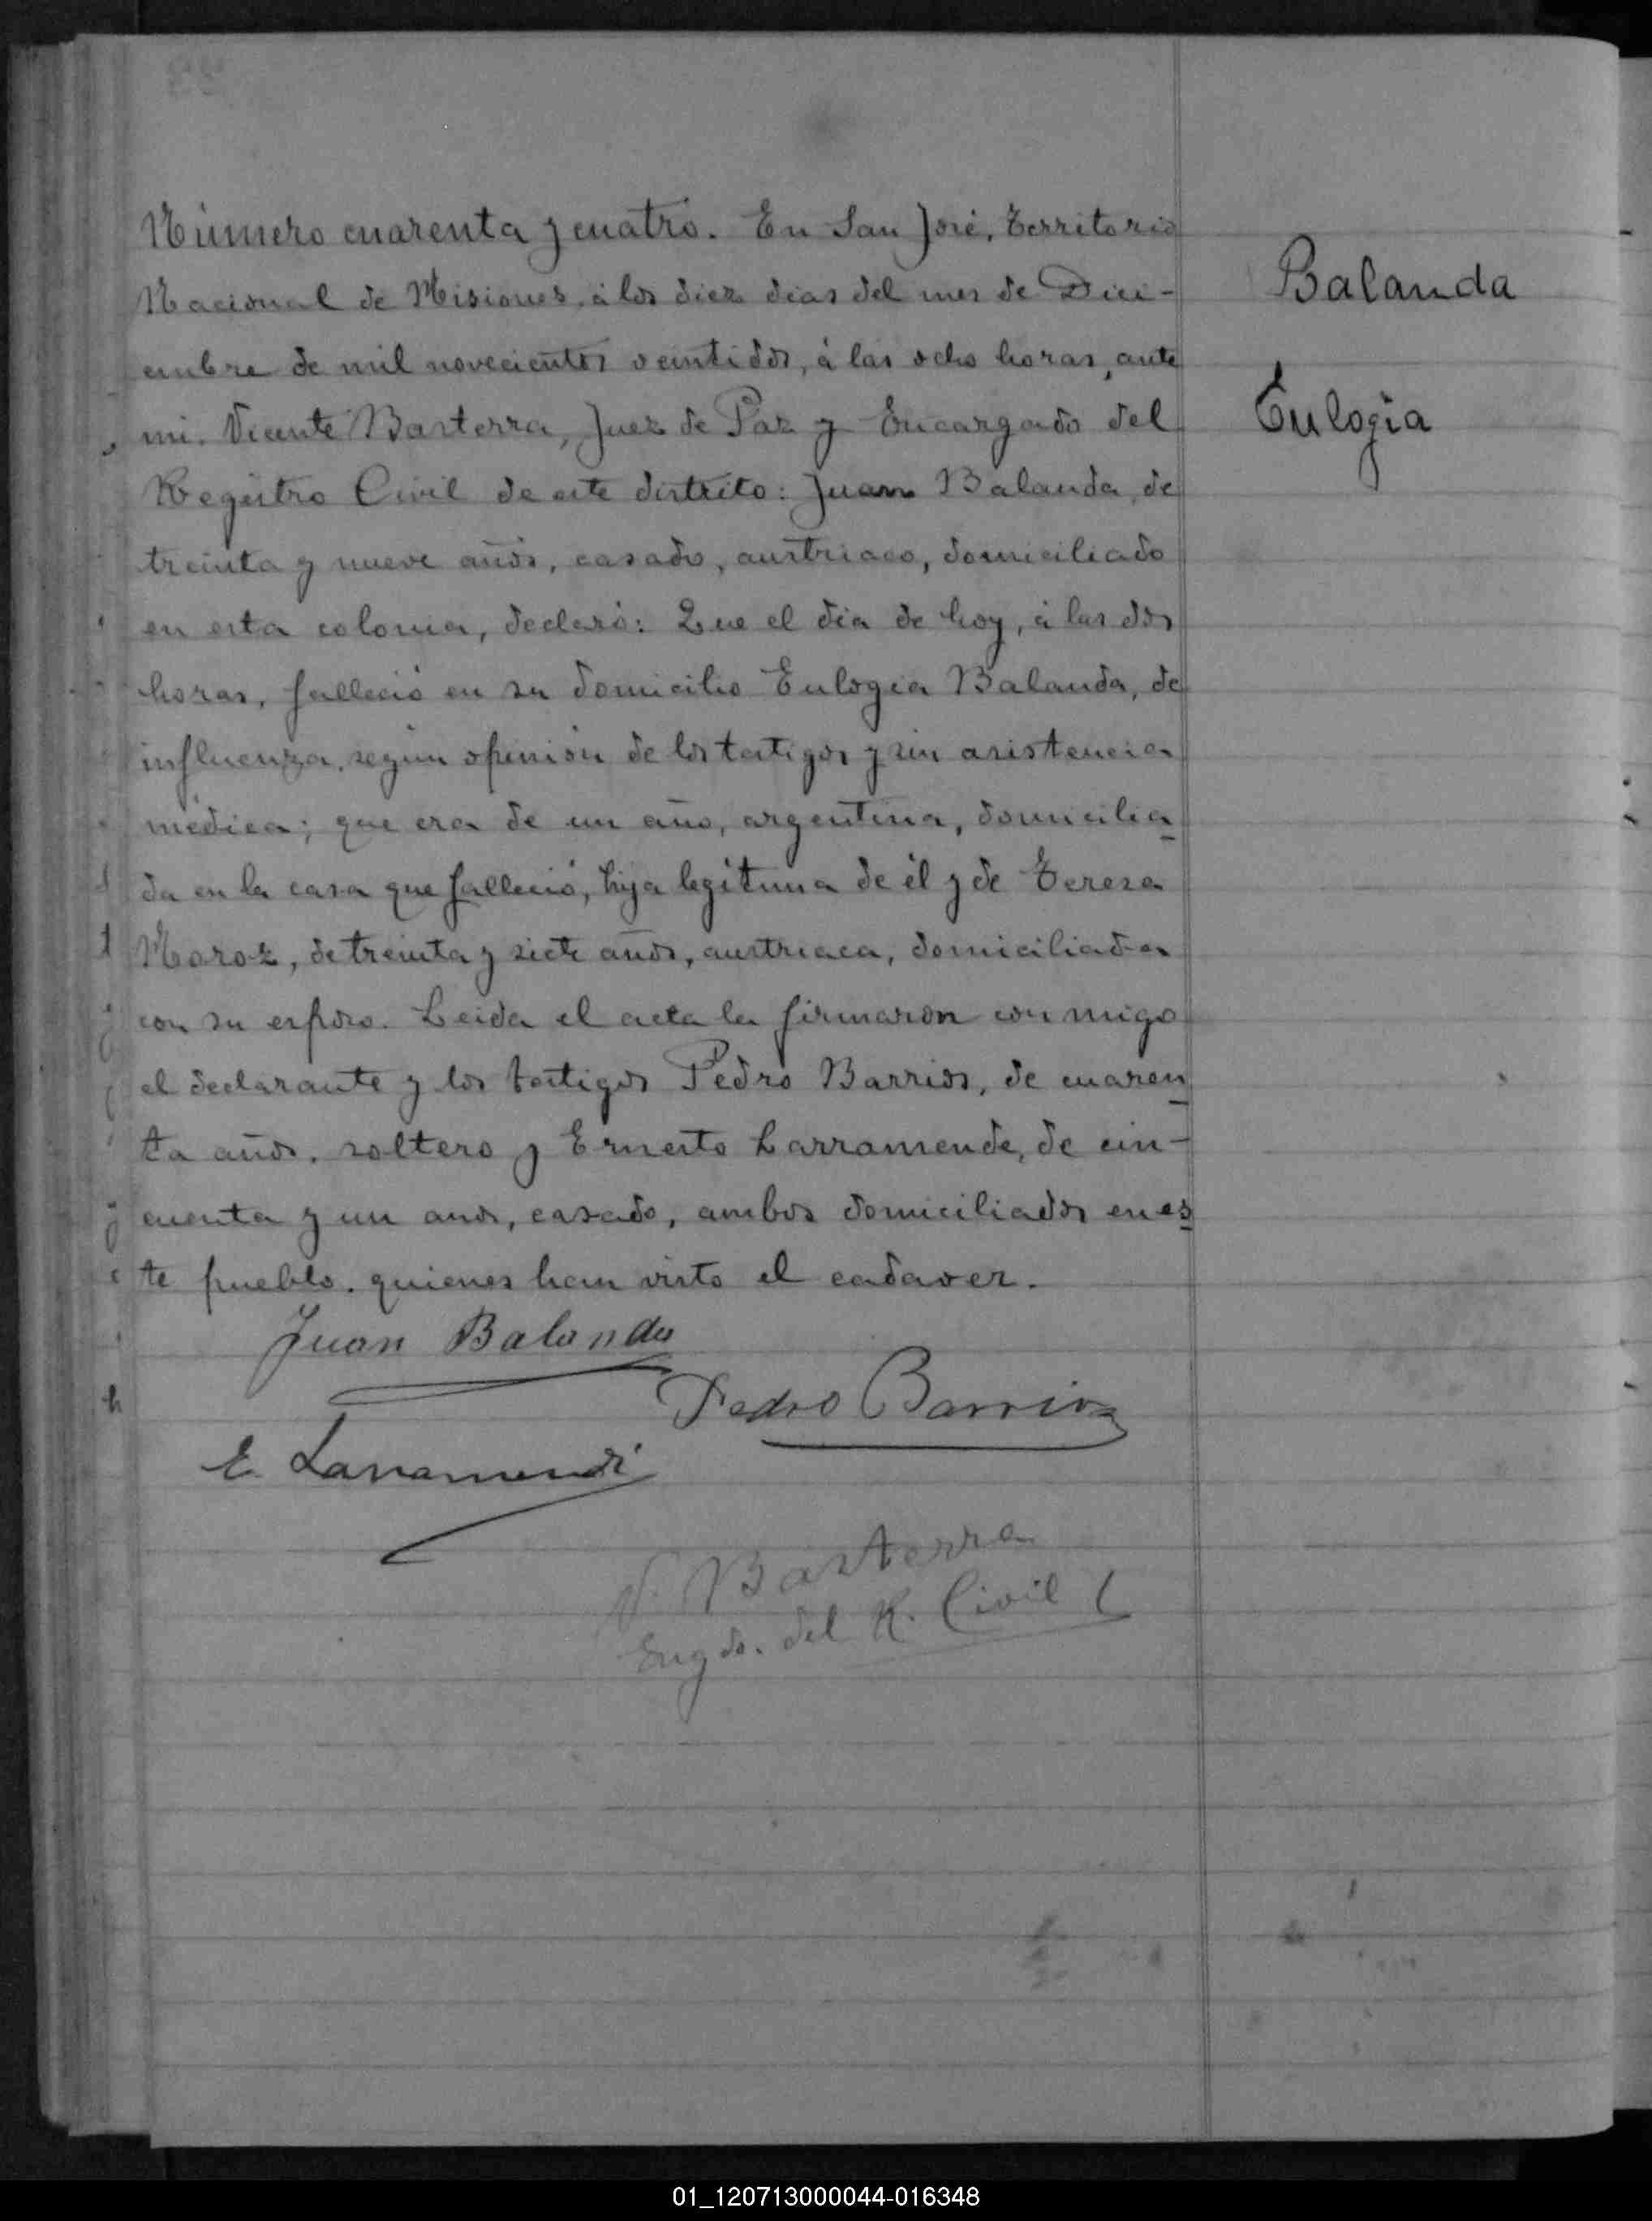 Número cuarenta y cuatro. En San José, Territorio
Balanda
Nacional de Misiones, á los diez dias del mes de Dici-
embre de mil novecientos veintidos, á las ocho horas, ante
Eulogia
mi. Vicente Basterra, Juez de Paz y Encargado del
Registro Civil de este distrito: Juan Balanda, de
treinta y nueve años, casado, austriaco, domiciliado
en esta colonia, declaró: Que el dia de hoy, á las dos
horas, falleció en su domicilio Eulogia Balanda, de
influenza, según opinión de los testigos y sin asistencia
médica; que era de un año, argentina, domicilia
da en la casa que falleció, hija legítima de él y de Teresa
Moroz, de treinta y siete años, austriaca, domiciliada
con su esposo. Leida el acta la firmaron con migo
el declarante y los testigos Pedro Barrios, de cuaren
ta años, soltero y Ernesto Larramende, de cin-
cuenta y un anos, casado, ambos domiciliados en es
te pueblo, quienes han visto el cadaver.
Juan Balanda
Pedro Barrios
E. Larramendi
V. Basterra
Engdo. del R. Civil
01_120713000044-016348